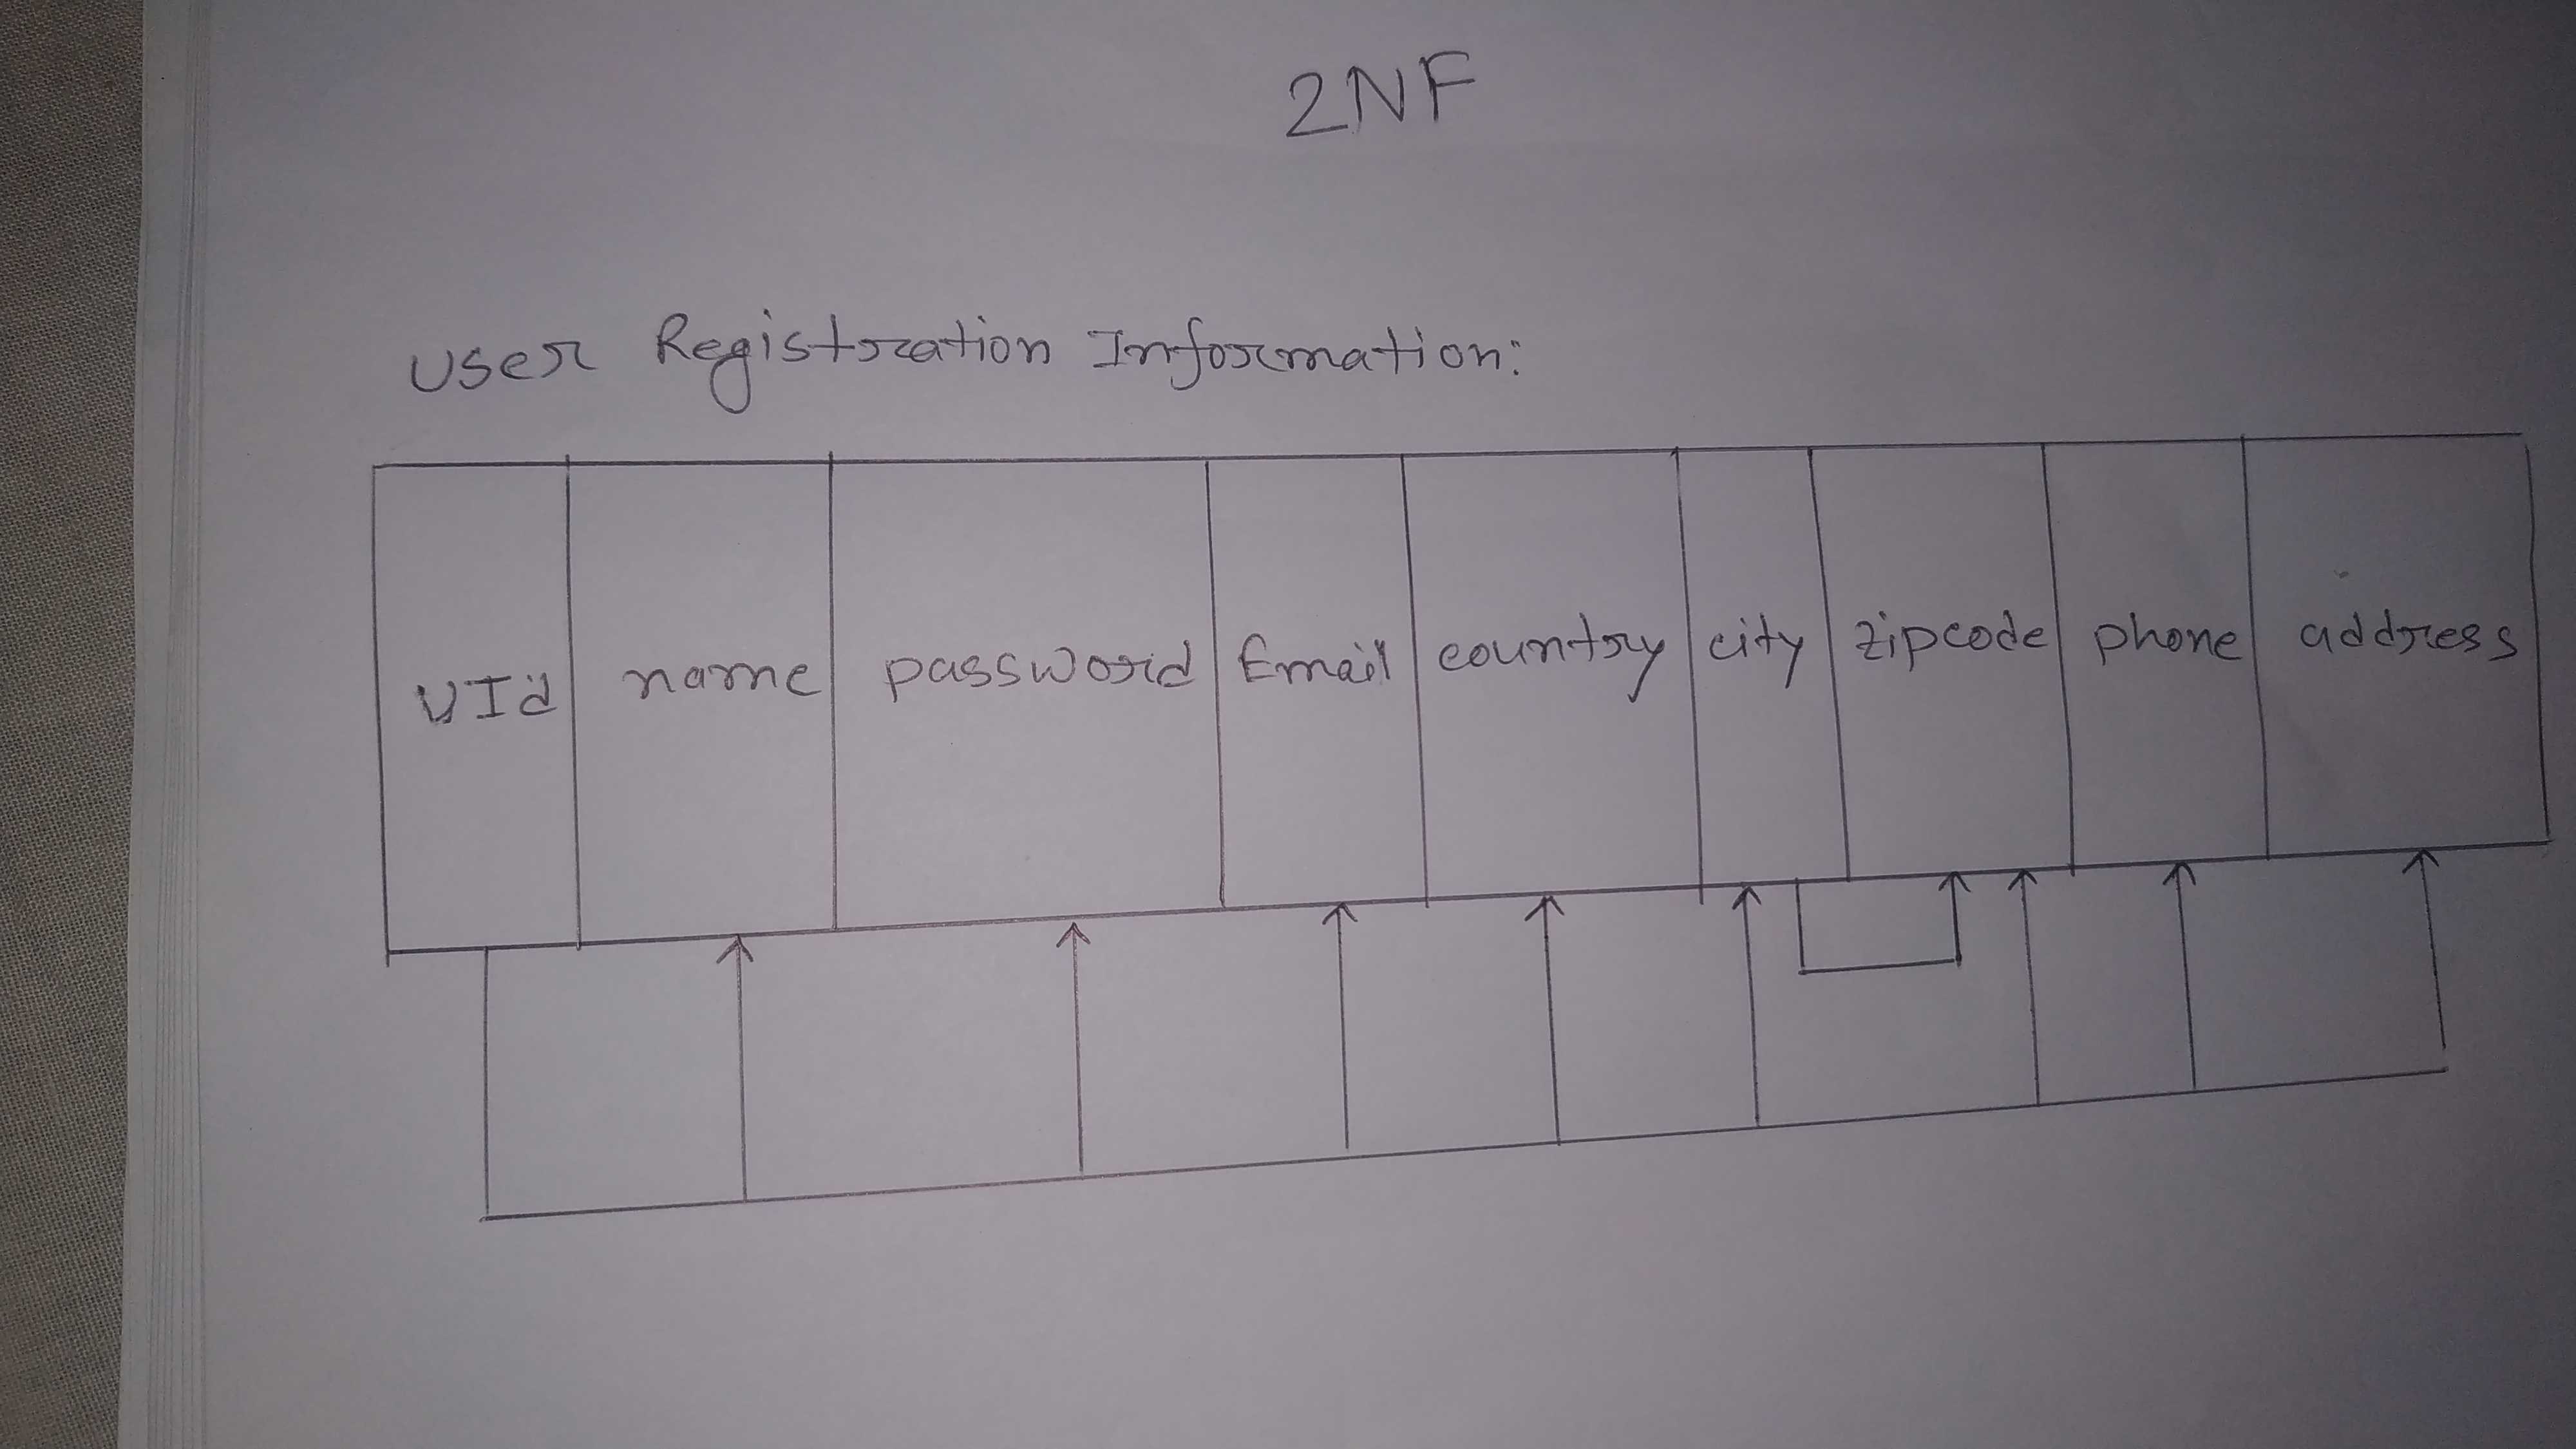 2NF
User Registration Information:
UId name password Email country city zipcode phone address